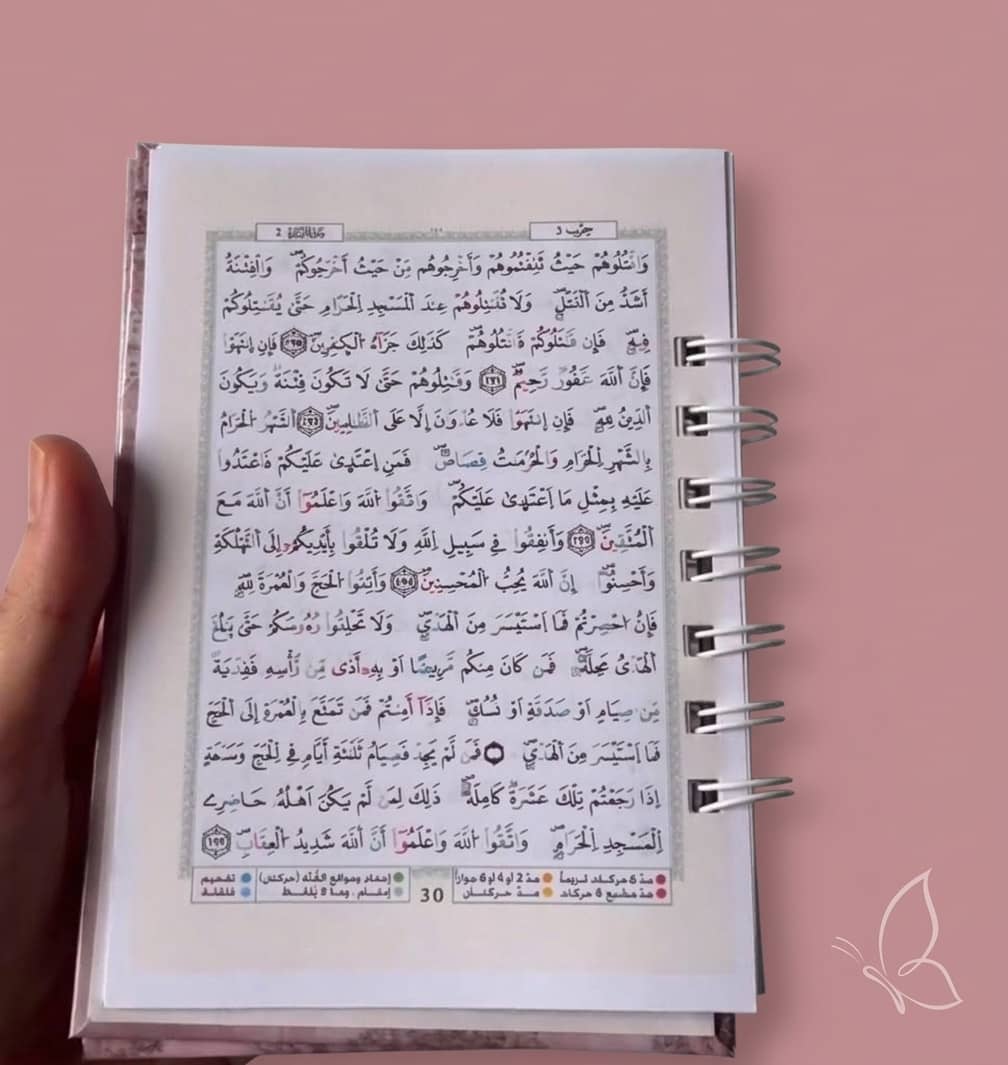 سورة البقرة 2
حزب 3
وَاقْتُلُوهُمْ حَيْثُ ثَقِفْتُمُوهُمْ وَأَخْرِجُوهُم مِّنْ حَيْثُ أَخْرَجُوكُمْ وَالْفِتْنَةُ
أَشَدُّ مِنَ الْقَتْلِ وَلَا تُقَٰتِلُوهُمْ عِندَ الْمَسْجِدِ الْحَرَامِ حَتَّىٰ يُقَٰتِلُوكُمْ
فِيهِ فَإِن قَٰتَلُوكُمْ فَاقْتُلُوهُمْ كَذَٰلِكَ جَزَآءُ الْكٰفِرِينَ فَإِنِ اِنتَهَوْا
فَإِنَّ اللَّهَ غَفُورٌ رَّحِيمٌ وَقَٰتِلُوهُمْ حَتَّىٰ لَا تَكُونَ فِتْنَةٌ وَيَكُونَ
الدِّينُ لِلهِ فَإِنِ اِنتَهَوْا فَلَا عُدْوَٰنَ إِلَّا عَلَى الظَّٰلِمِينَ الشَّهْرُ الْحَرَامُ
بِالشَّهْرِ اِلْحَرَامِ وَالْحُرُمَٰتُ قِصَاصٌ فَمَنِ اِعْتَدَىٰ عَلَيْكُمْ فَاعْتَدُوا
عَلَيْهِ بِمِثْلِ مَا اَعْتَدَىٰ عَلَيْكُمْ وَاتَّقُوا اللَّهَ وَاعْلَمُوٓا أَنَّ اللَّهَ مَعَ
الْمُتَّقِينَ وَأَنفِقُوا فِي سَبِيلِ اِللَّهِ وَلَا تُلْقُوا بِأَيْدِيكُمُۥٓ إِلَى اَلتَّهْلُكَةِ
وَأَحْسِنُوٓا إِنَّ اللَّهَ يُحِبُّ الْمُحْسِنِينَ وَأَتِمُّوا الْحَجَّ وَالْعُمْرَةَ لِلهِ
فَإِنُ احْصِرْتُمْ فَمَا اَسْتَيْسَرَ مِنَ اَلْهَدْيِ وَلَا تَحْلِقُوا رُءُوسَكُمْ حَتَّىٰ يَبْلُغَ
اَلْهَدْيُ مَحِلَّهُ فَمَن كَانَ مِنكُم مَّرِيضًا اَوْ بِهِۦٓ أَذًى مِّن رَّأْسِهِ فَفِدْيَةٌ
مِّن صِيَامٍ اَوْ صَدَقَةٍ اَوْ نُسُكٍ فَإِذَآ أَمِنتُمْ فَمَن تَمَتَّعَ بِالْعُمْرَةِ إِلَى الْحَجِّ
فَمَا اَسْتَيْسَرَ مِنَ اَلْهَدْيِ فَمَن لَّمْ يَجِدْ فَصِيَامُ ثَلَٰثَةِ أَيَّامٍ فِي اِلْحَجِّ وَسَبْعَةٍ
إِذَا رَجَعْتُمْ تِلْكَ عَشَرَةٌ كَامِلَةٌ ذَٰلِكَ لِمَن لَّمْ يَكُنَ اَهْلُهُۥ حَاضِرِے
اِلْمَسْجِدِ اِلْحَرَامِ وَاتَّقُوا اللَّهَ وَاعْلَمُوٓا أَنَّ اللَّهَ شَدِيدُ الْعِقَابِ
مدّ 6 حركات لزوماً مدّ 2 أو 4 أو 6 جوازاً
مدّ مشبع 6 حركات مدّ حركتان
30
إخفاء ومواقع الغُنّة (حركتان) تفخيم
إدغام، وما لا يُلفظ قلقلة